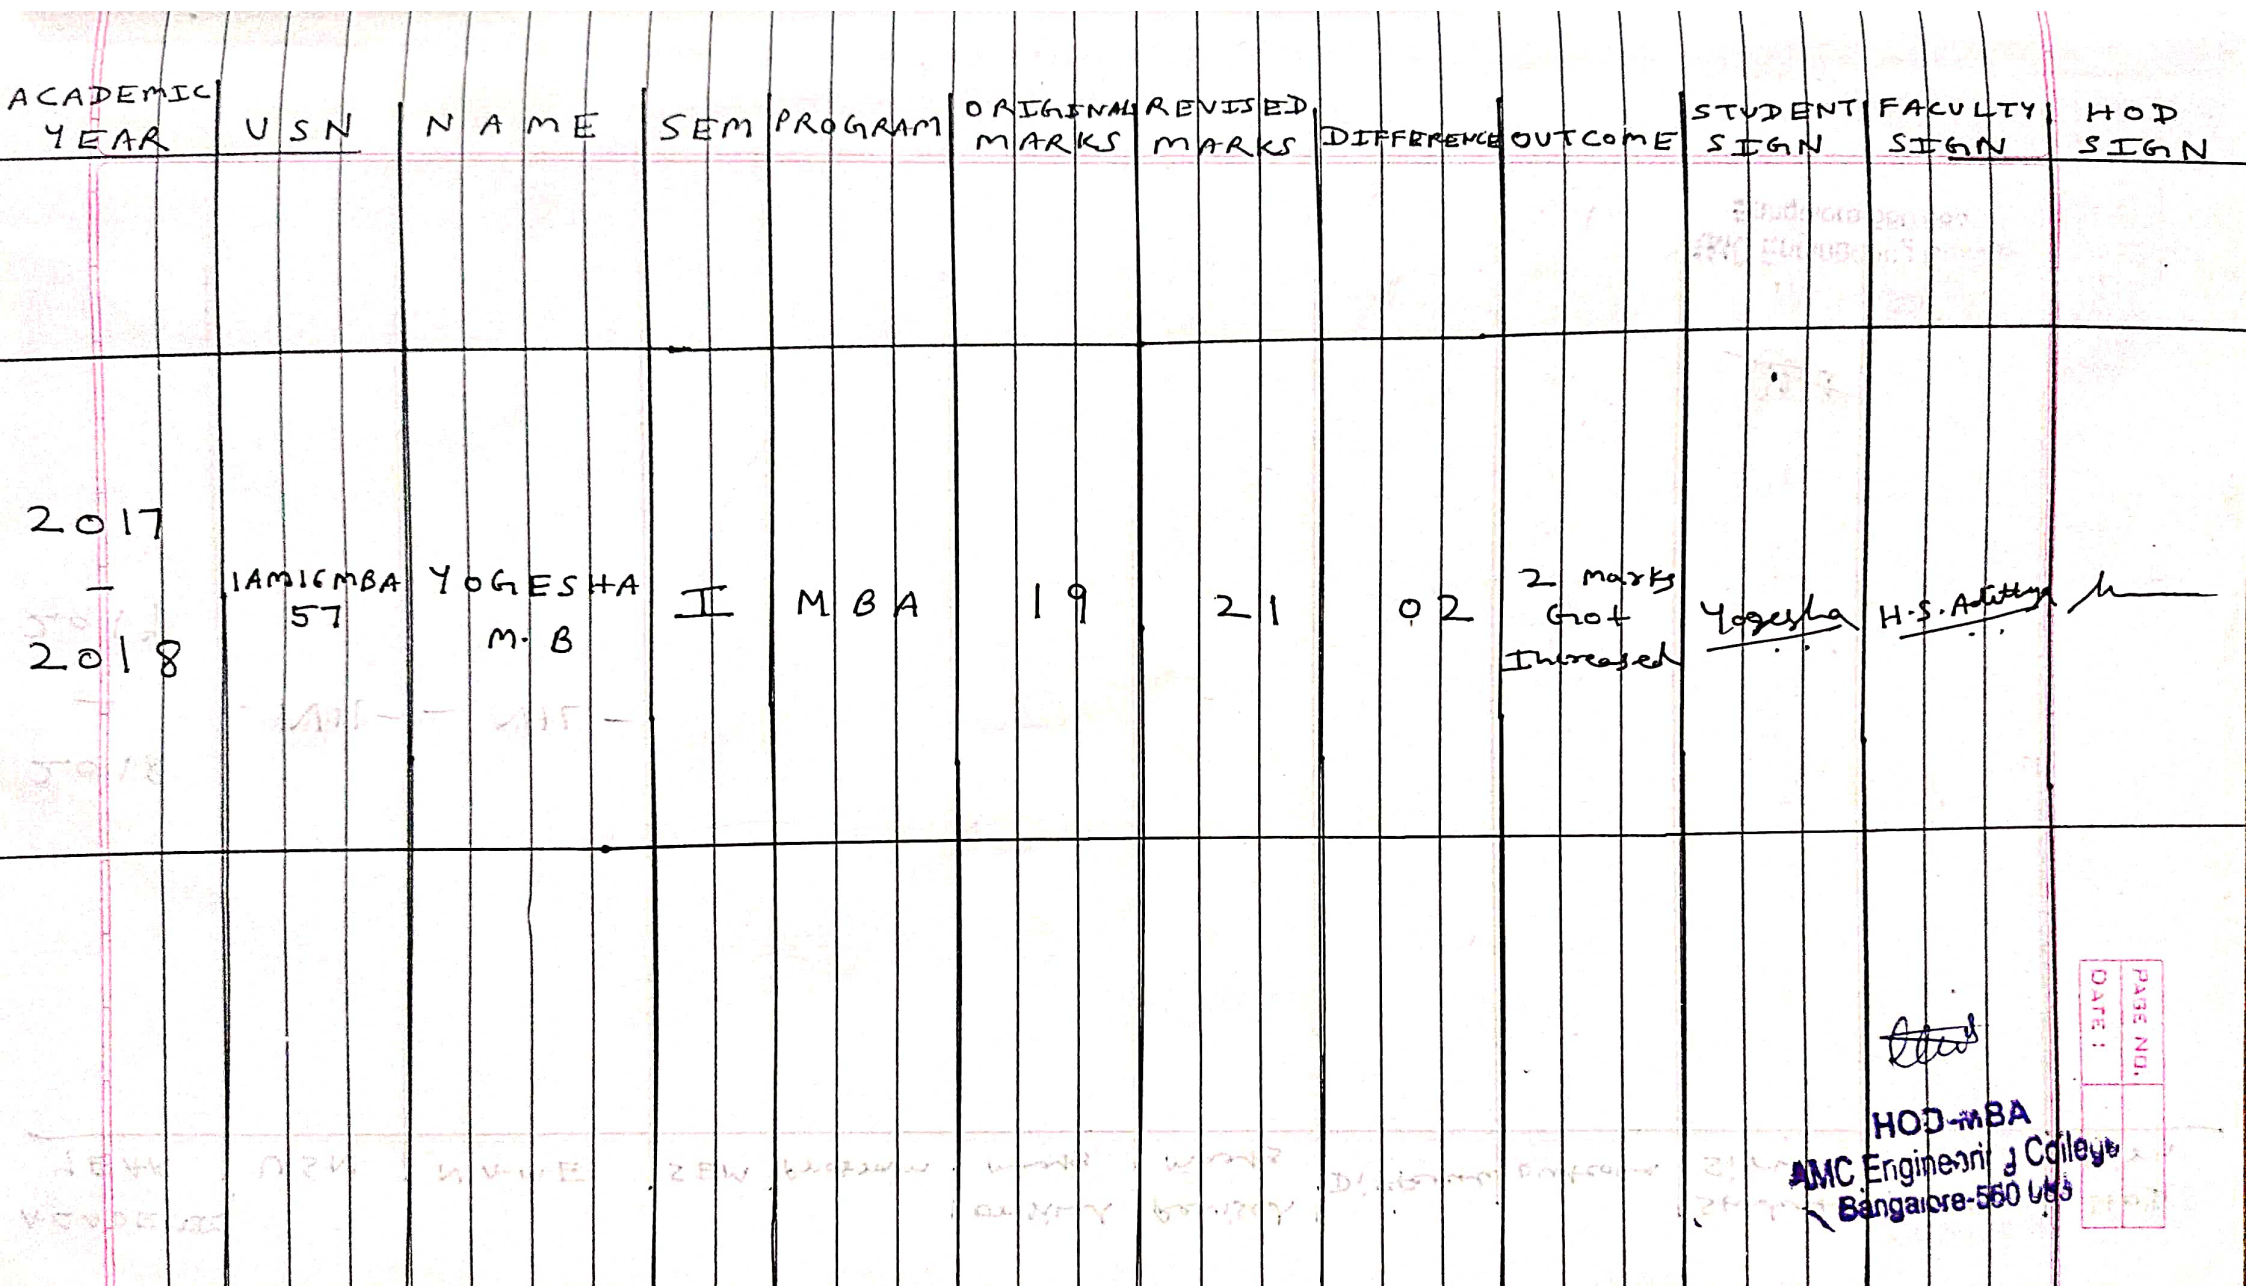 ACADEMIC YEAR USN NAME SEM PROGRAM ORIGINAL MARKS REVISED MARKS DIFFERENCE OUTCOME STUDENT SIGN FACULTY SIGN HOD SIGN
2017
-
2018
1AM16MBA
57
YOGESHA
M. B
I
MBA
19
21
02
2 Marks
Got
Increased
Yogesha
H.S.
PAGE NO.
DATE :
HOD-MBA
AMC Engineering College
Bangalore-560